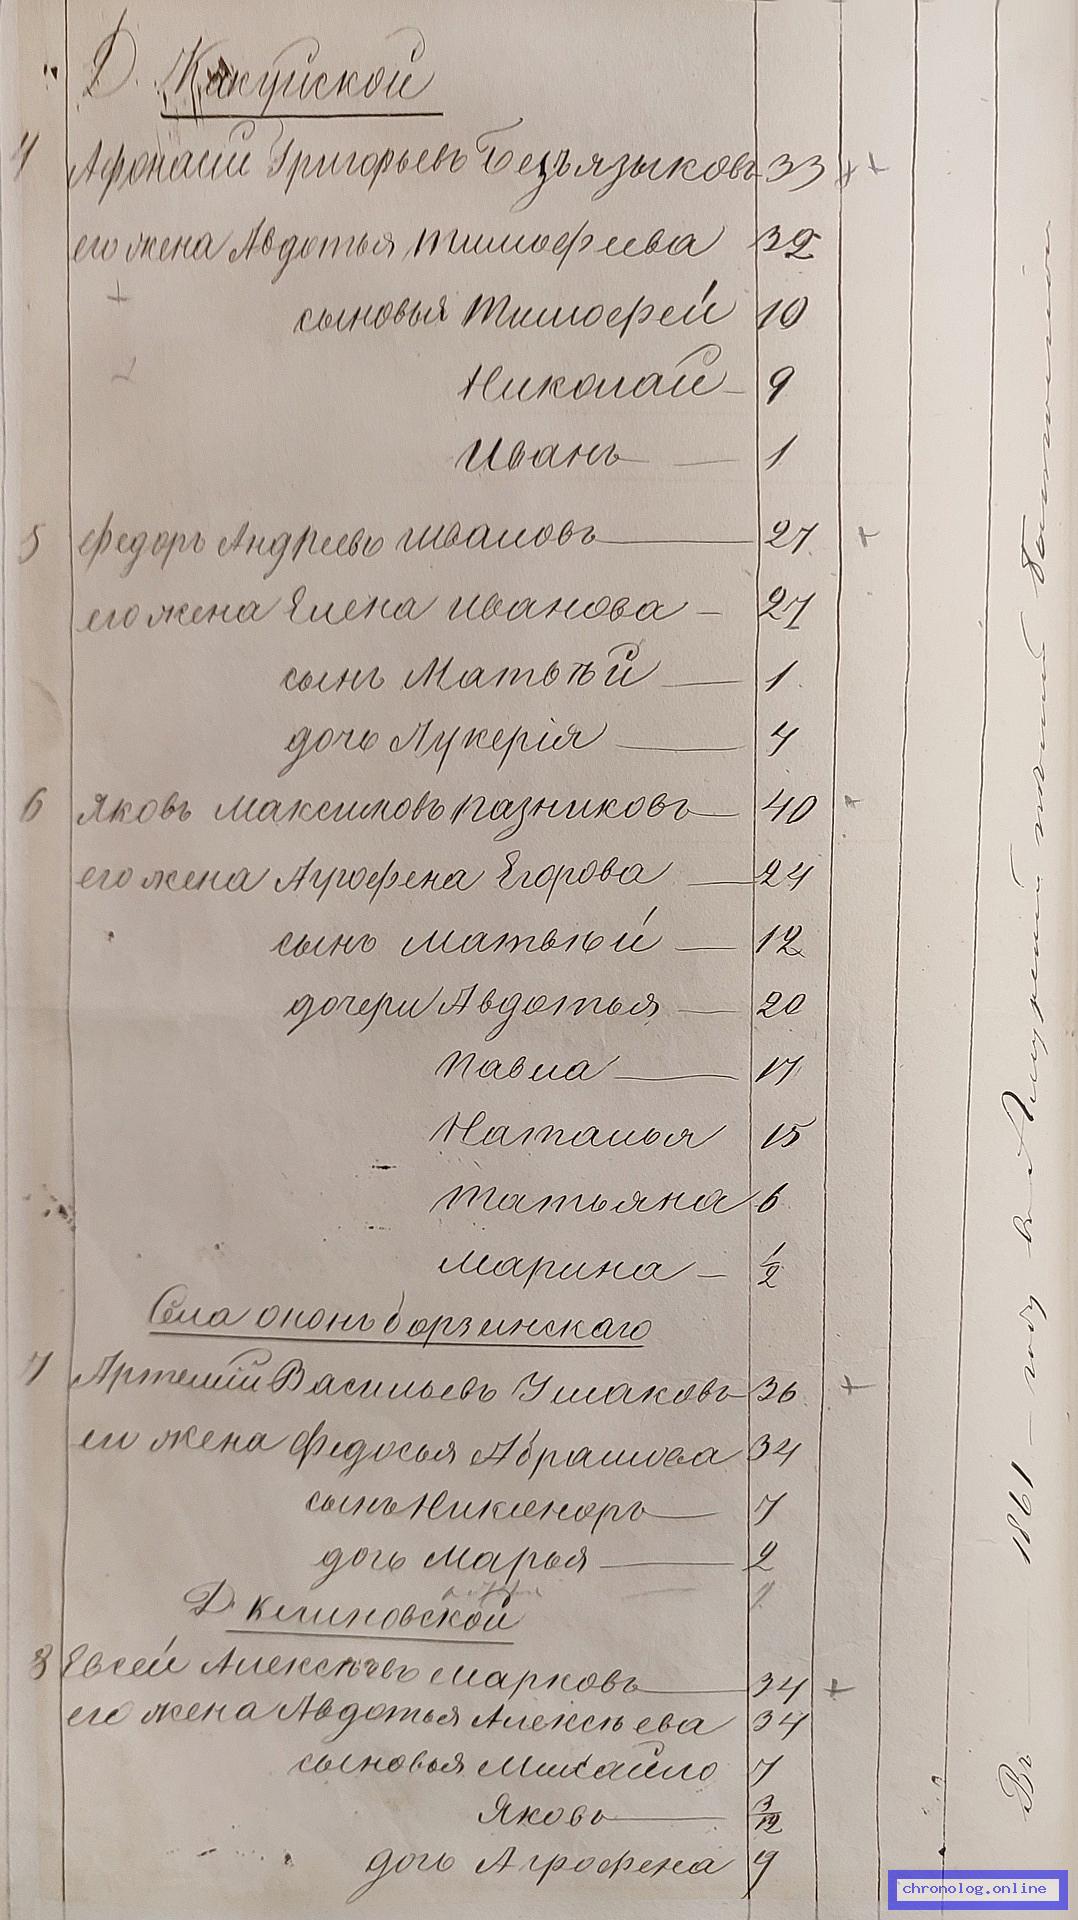 Д. Какуйской
4 Афонасій Григорьевъ Безъязыковъ 33
его жена Авдотья Тимофеева 32
сыновья Тимофей 10
Николай 9
Иванъ 1
5 Федоръ Андреевъ Ивановъ 27
его жена Елена Иванова 27
сынъ Матвѣй 1
дочь Лукерія 4
6 Яковъ Максимовъ Пазниковъ 40
его жена Агрофена Егорова 24
сынъ Матвѣй 12
дочери Авдотья 20
Павла 17
Наталья 15
Татьяна 6
Марина 1/2
Села ононъ борзинскаго
7 Артемій Васильевъ Ушаковъ 36
его жена Федосья Абрамова 34
сынъ Никаноръ 7
дочь Марья 2
Д. Кличовской
8 Евсей Алексѣевъ Марковъ 34
его жена Авдотья Алексѣева 34
сыновья Михайло 7
Яковъ 3/12
дочь Агрофена 9
Въ 1861 году въ Амурскій пѣшій баталіонъ
chronolog.online